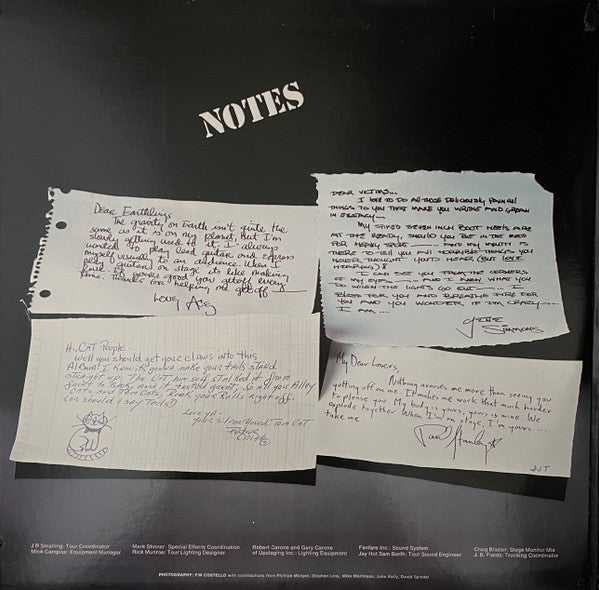 NOTES
Dear Earthlings,
The gravity on Earth isn't quite the
same as it is on my planet, But I'm
slowly getting used to it. I always
wanted to play lead guitar and express
myself visually to an audience. When I
play guitar on stage its like making
love. If you're good you get off every
time. Thanks for helping me get off —
Love, Ace
DEAR VICTIMS...
I LOVE TO DO ALL THOSE DELICIOUSLY PAINFUL
THINGS TO YOU THAT MAKE YOU WRITHE AND GROAN
IN ECSTACY...
MY SPIKED SEVEN INCH BOOT HEELS ARE
AT THE READY, SHOULD YOU BE IN THE MOOD
FOR HEAVY SPORT — AND MY MOUTH IS
THERE TO TELL YOU ALL HORRIBLE THINGS YOU
NEVER THOUGHT YOU'D HEAR (BUT LOVE
HEARING)!
I CAN SEE YOU FROM THE CORNERS
OF MY EYES — AND I KNOW WHAT YOU
DO WHEN THE LIGHTS GO OUT — I
BLEED FOR YOU AND BREATHE FIRE FOR
YOU AND YOU WONDER IF I'M CRAZY...
I AM....
Gene
Simmons
Hi, CAT People:
well you should get your claws into this
Album! I know its gonna make your tails stand
straight up. The CAT him self stalked it from
front to back and it tasted great, so all you Alley
Cats and Tom Cats, Rock your Rolls Right off.
(or should I say Tails?)
Love ya
your silvermoned Tom CAT
Peter
Criss
My Dear Lovers,
Nothing arouses me more than seeing you
getting off on me. It makes me work that much harder
to please you. My body is yours, yours is mine. We
explode together. When I'm on stage, I'm yours....
take me.
Paul Stanley
J R Smalling: Tour Coordinator
Mick Campise: Equipment Manager
Mark Stinner: Special Effects Coordination
Rick Munroe: Tour Lighting Designer
Robert Carone and Gary Carone
of Upstaging Inc.: Lighting Equipment
Fanfare Inc.: Sound System
Jay Hot Sam Barth: Tour Sound Engineer
Craig Blazier: Stage Monitor Mix
J. B. Fields: Trucking Coordinator
PHOTOGRAPHY: FIN COSTELLO with contributions from Phillipe Morgan, Stephen Lang, Mike Martineau, John Kelly, David Spindel